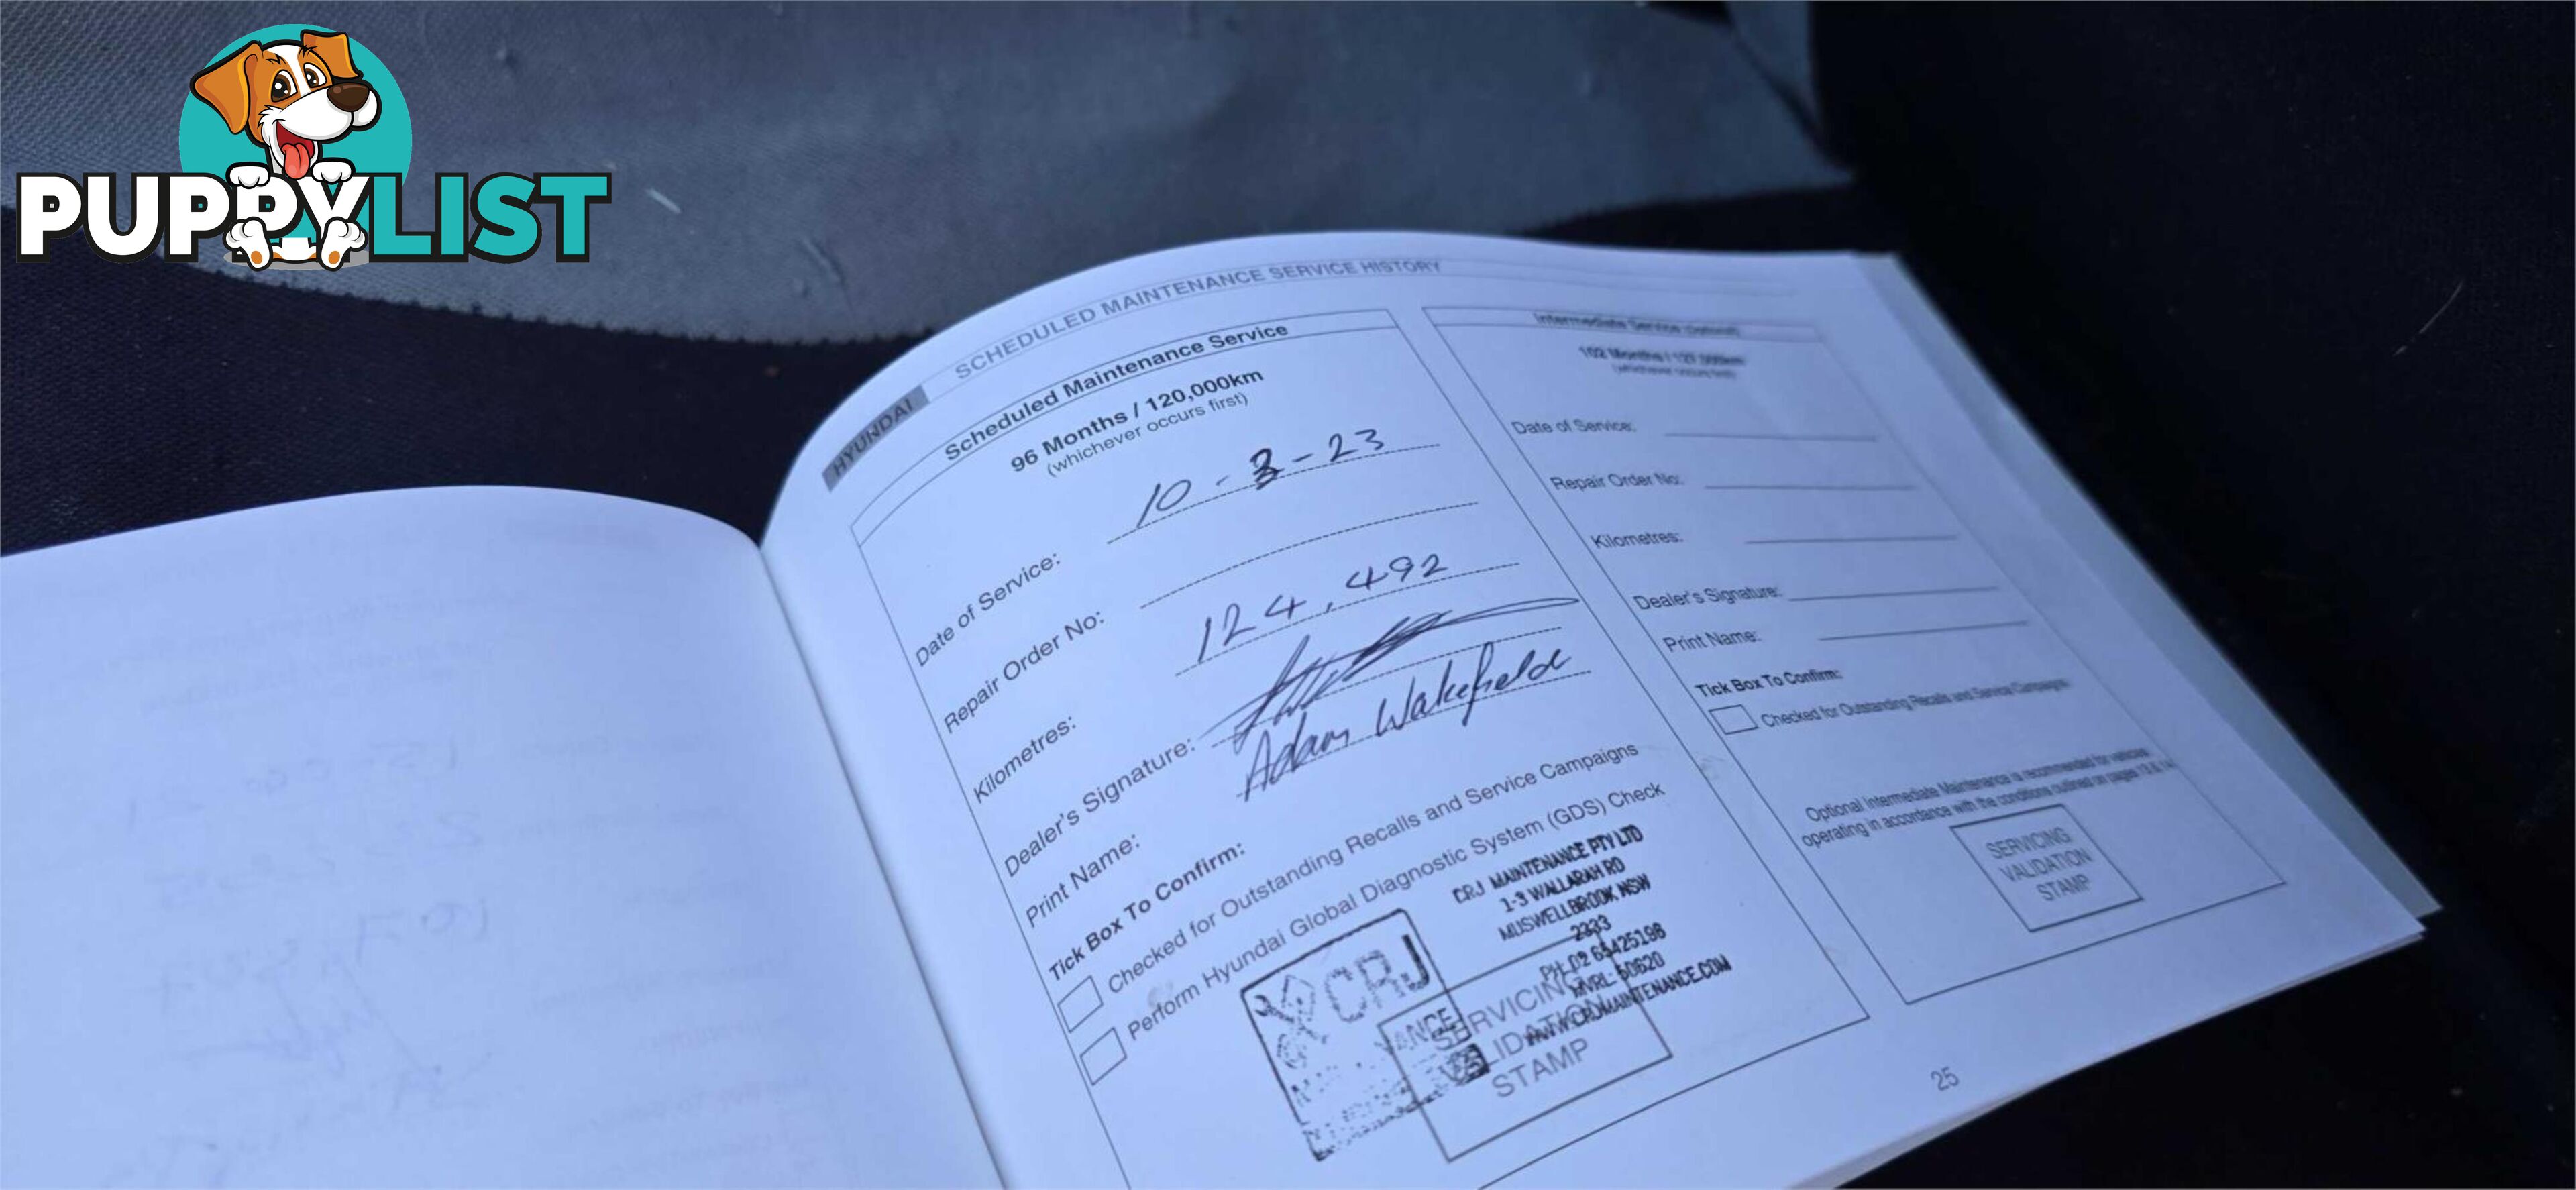 PUPPYLIST
HYUNDAI
SCHEDULED MAINTENANCE SERVICE HISTORY
Scheduled Maintenance Service
96 Months / 120,000km
(whichever occurs first)
Date of Service: 10 - 3 - 23
Repair Order No:
Kilometres: 124,492
Dealer's Signature:
Print Name: Adam Wakefield
Tick Box To Confirm:
Checked for Outstanding Recalls and Service Campaigns
Perform Hyundai Global Diagnostic System (GDS) Check
CRJ MAINTENANCE PTY LTD
1-3 WALLARAH RD
MUSWELLBROOK NSW
2333
PH: 02 65425196
MVRL: 50620
WWW.CRJMAINTENANCE.COM
CRJ
SERVICING
VALIDATION
STAMP
Intermediate Service (Optional)
102 Months / 127,500km
(whichever occurs first)
Date of Service:
Repair Order No:
Kilometres:
Dealer's Signature:
Print Name:
Tick Box To Confirm:
Checked for Outstanding Recalls and Service Campaigns
Optional Intermediate Maintenance is recommended for vehicles
operating in accordance with the conditions outlined on pages 13 &
SERVICING
VALIDATION
STAMP
25